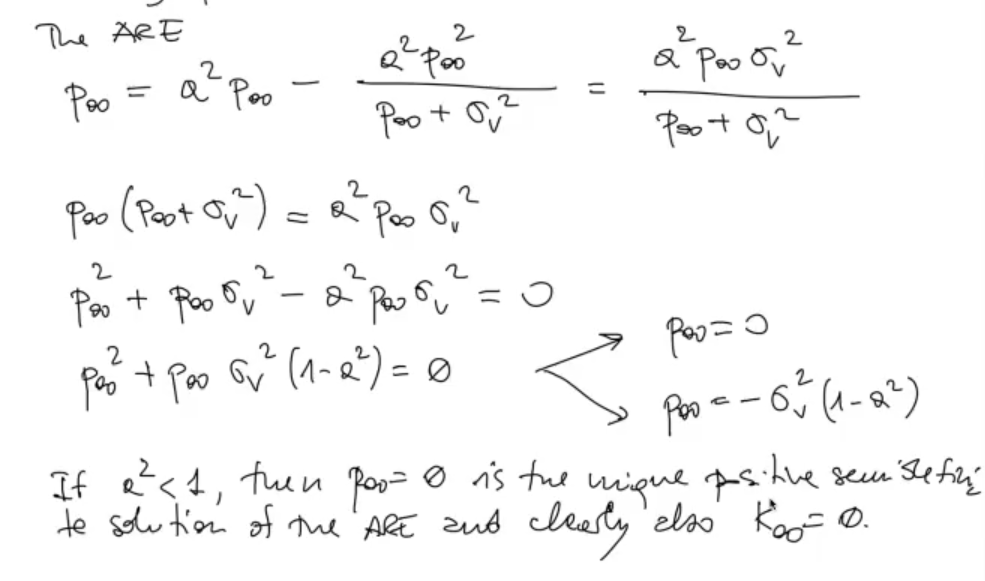 The ARE
p∞ = a² p∞ − a² p∞² / (p∞ + σᵥ²) = a² p∞ σᵥ² / (p∞ + σᵥ²)
p∞ (p∞ + σᵥ²) = a² p∞ σᵥ²
p∞² + p∞ σᵥ² − a² p∞ σᵥ² = 0
p∞² + p∞ σᵥ² (1−a²) = 0
p∞ = 0
p∞ = − σᵥ² (1−a²)
If a² < 1, then p∞ = 0 is the unique positive semidefini
te solution of the ARE and clearly also K∞ = 0.